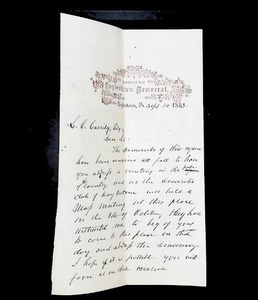 Office of the
Democrat,
Pa. Sept. 10, 1865.
L. C. Cassidy, Esq,
Dear Sir:
The Democrats of this region
have been anxious all fall to have
you address a meeting in the
County and as the Democratic
Club of will hold a
Mass Meeting at this place
on the of October, they have
instructed me to beg of you
to come to this place on that
day and address the Democracy.
I hope if it is possible you will
favor us on that occasion